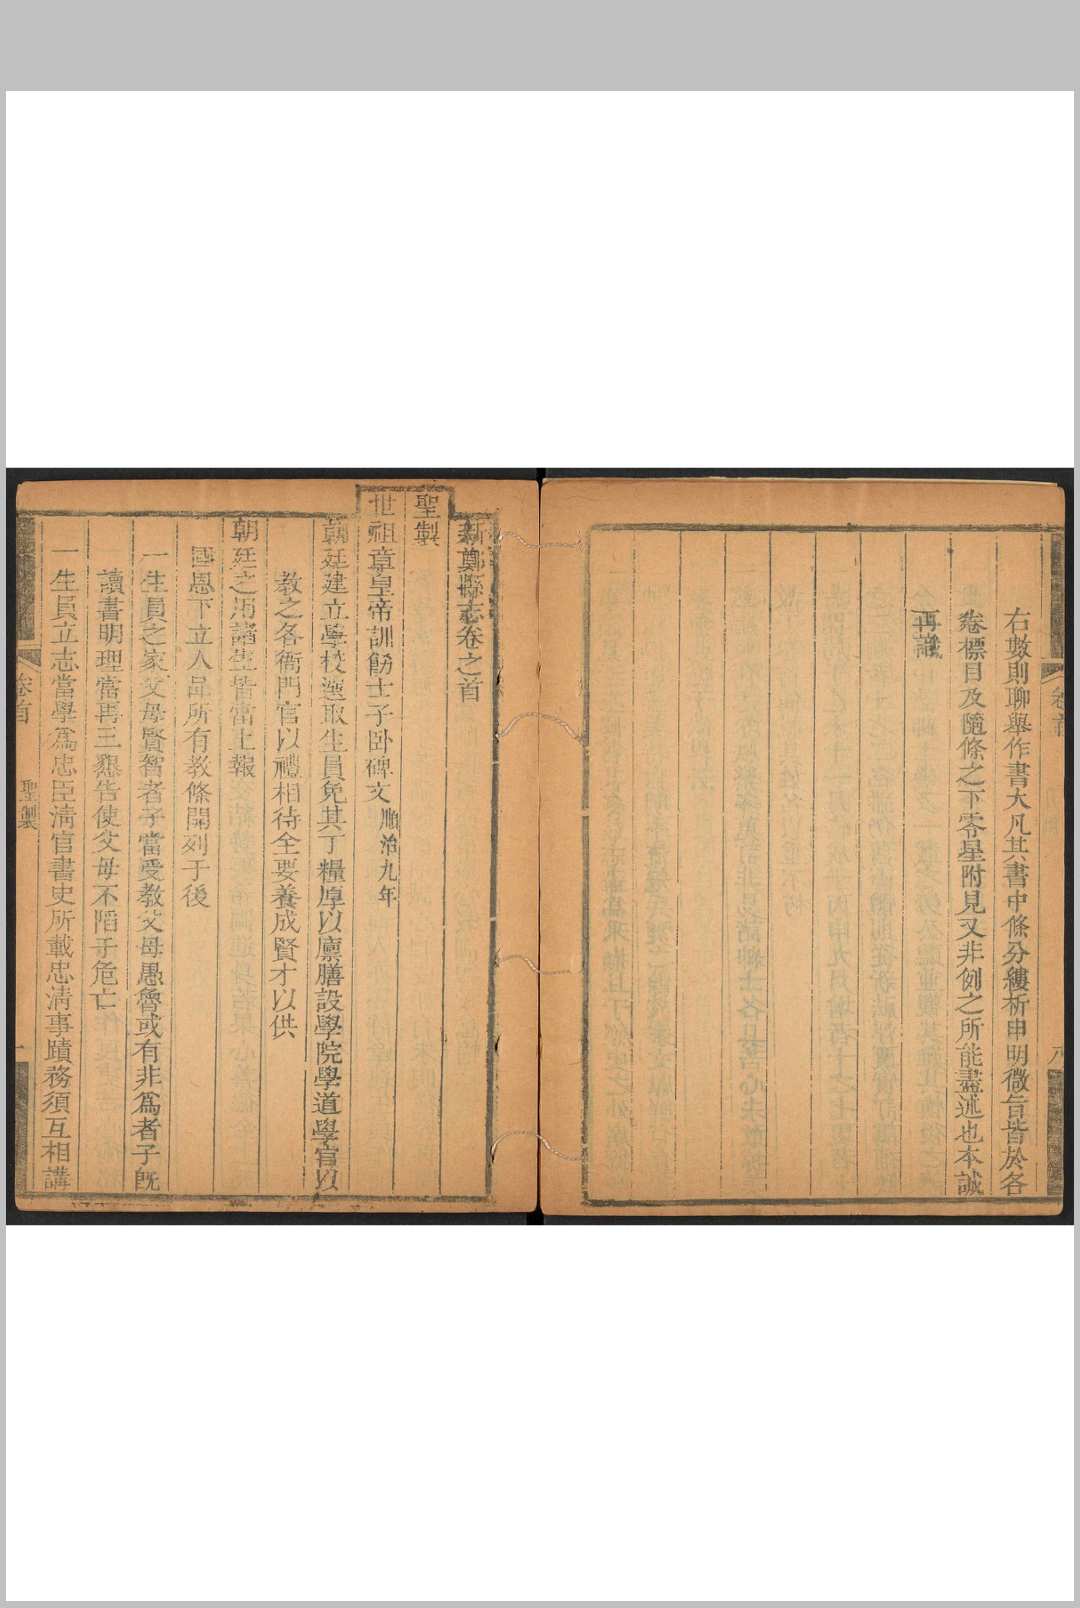 右數則聊舉作書大凡其書中條分縷析申明微旨皆於各
卷標目及隨條之下零星附見又非例之所能盡述也本誠
再識
卷首
八
新鄭縣志卷之首
聖製
世祖章皇帝訓飭士子卧碑文順治九年
朝廷建立學校選取生員免其丁糧厚以廪膳設學院學道學官以
教之各衙門官以禮相待全要養成賢才以供
朝廷之用諸生皆當上報
國恩下立人品所有教條開列于後
一生員之家父母賢智者子當受教父母愚魯或有非爲者子旣
讀書明理當再三懇告使父母不陷于危亡
一生員立志當學爲忠臣淸官書史所載忠淸事蹟務須互相講
卷首
聖製
一